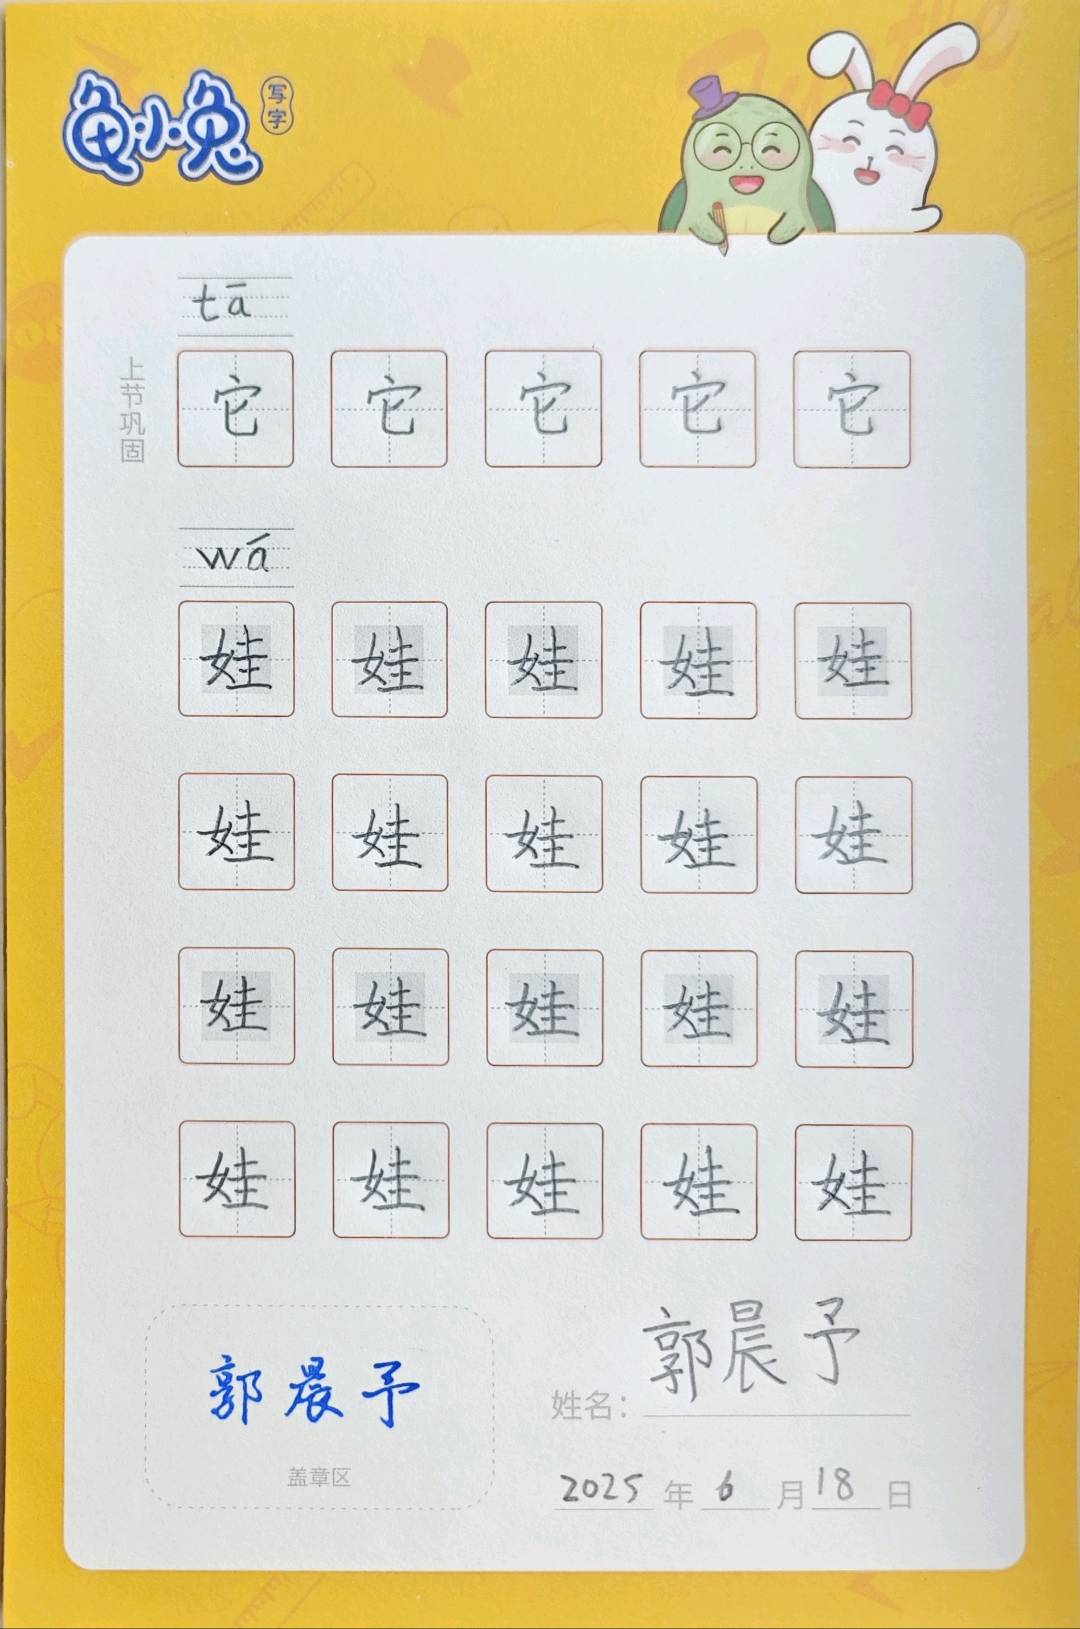 龟小兔 写字
tā
上节巩固
它 它 它 它 它
wá
娃 娃 娃 娃 娃
娃 娃 娃 娃 娃
娃 娃 娃 娃 娃
娃 娃 娃 娃 娃
郭晨予
盖章区
姓名：郭晨予
2025年6月18日